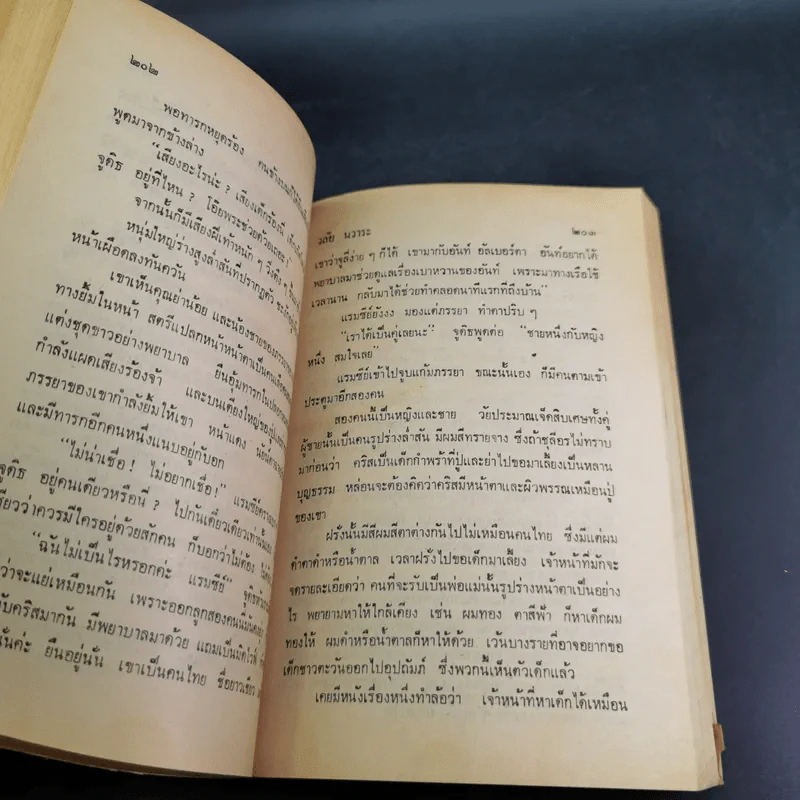 ๒๐๒
พอทารกหยุดร้อง คนข้างบนก็ได้ยิน
พูดมาจากข้างล่าง
“เสียงอะไรน่ะ ? เสียงเด็กร้องนี่
จูดิธ อยู่ที่ไหน ? โอ๊ยพระช่วยด้วยเถอะ!
จากนั้นก็มีเสียงฝีเท้าหนัก ๆ วิ่งตึง ๆ
หนุ่มใหญ่ร่างสูงล่ำสันที่ปรากฏตัว
หน้าเผือดลงทันควัน
เขาเห็นคุณย่าน้อย และน้องชายของภรรยา
ทางยิ้มในหน้า สตรีแปลกหน้าหน้าตาเป็นคน
แต่งชุดขาวอย่างพยาบาล ยืนอุ้มทารก
กำลังแผดเสียงร้องจ้า และบนเตียงใหญ่ของ
ภรรยาของเขากำลังยิ้มให้เขา หน้าแดง
และมีทารกอีกคนหนึ่งแนบอยู่กับอก
“ไม่น่าเชื่อ ! ไม่อยากเชื่อ!” แรมซีย์
จูดิธ อยู่คนเดียวหรือนี่ ? ไปกันเดี๋ยวเดียวเท่านั้น
เชียวว่าควรมีใครอยู่ด้วยสักคน ก็บอกว่าไม่ต้อง
“ฉันไม่เป็นไรหรอกค่ะ แรมซีย์” จูดิธ
ว่าจะแย่เหมือนกัน เพราะออกลูกสองคน
กับคริสมากัน มีพยาบาลมาด้วย แถมเป็นมิดไวฟ์
นั่นค่ะ ยืนอยู่นั่น เขาเป็นคนไทย ชื่อยาวเชียว
วลัย นวาระ ๒๐๓
เขาว่าจูลี่ง่าย ๆ ก็ได้ เขามากับอันท์ อัลเบอร์ตา อันท์อยากได้
พยาบาลมาช่วยดูแลเรื่องเบาหวานของอันท์ เพราะมาทางเรือใช้
เวลานาน กลับมาได้ช่วยทำคลอดนาทีแรกที่ถึงบ้าน”
แรมซีย์ยังงง มองแต่ภรรยา ทำตาปริบ ๆ
“เราได้เป็นคู่เลยนะ” จูดิธพูดต่อ “ชายหนึ่งกับหญิง
หนึ่ง สมใจเลย”
แรมซีย์เข้าไปจูบแก้มภรรยา ขณะนั้นเอง ก็มีคนตามเข้า
ประตูมาอีกสองคน
สองคนนี้เป็นหญิงและชาย วัยประมาณเจ็ดสิบเศษทั้งคู่
ผู้ชายนั้นเป็นคนรูปร่างล่ำสัน มีผมสีทรายจาง ซึ่งถ้าชุลีอรไม่ทราบ
มาก่อนว่า คริสเป็นเด็กกำพร้าที่ปู่และย่าไปขอมาเลี้ยงเป็นหลาน
บุญธรรม หล่อนจะต้องคิดว่าคริสมีหน้าตาและผิวพรรณเหมือนปู่
ของเขา
ฝรั่งนั้นมีสีผมสีตาต่างกันไปไม่เหมือนคนไทย ซึ่งมีแต่ผม
ดำตาดำหรือน้ำตาล เวลาฝรั่งไปขอเด็กมาเลี้ยง เจ้าหน้าที่มักจะ
จดรายละเอียดว่า คนที่จะรับเป็นพ่อแม่นั้นรูปร่างหน้าตาเป็นอย่าง
ไร พยายามหาให้ใกล้เคียง เช่น ผมทอง ตาสีฟ้า ก็หาเด็กผม
ทองให้ ผมดำหรือน้ำตาลก็หาให้ด้วย เว้นบางรายที่อาจอยากขอ
เด็กชาวตะวันออกไปอุปถัมภ์ ซึ่งพวกนี้เห็นตัวเด็กแล้ว
เคยมีหนังเรื่องหนึ่งทำล้อว่า เจ้าหน้าที่หาเด็กได้เหมือน